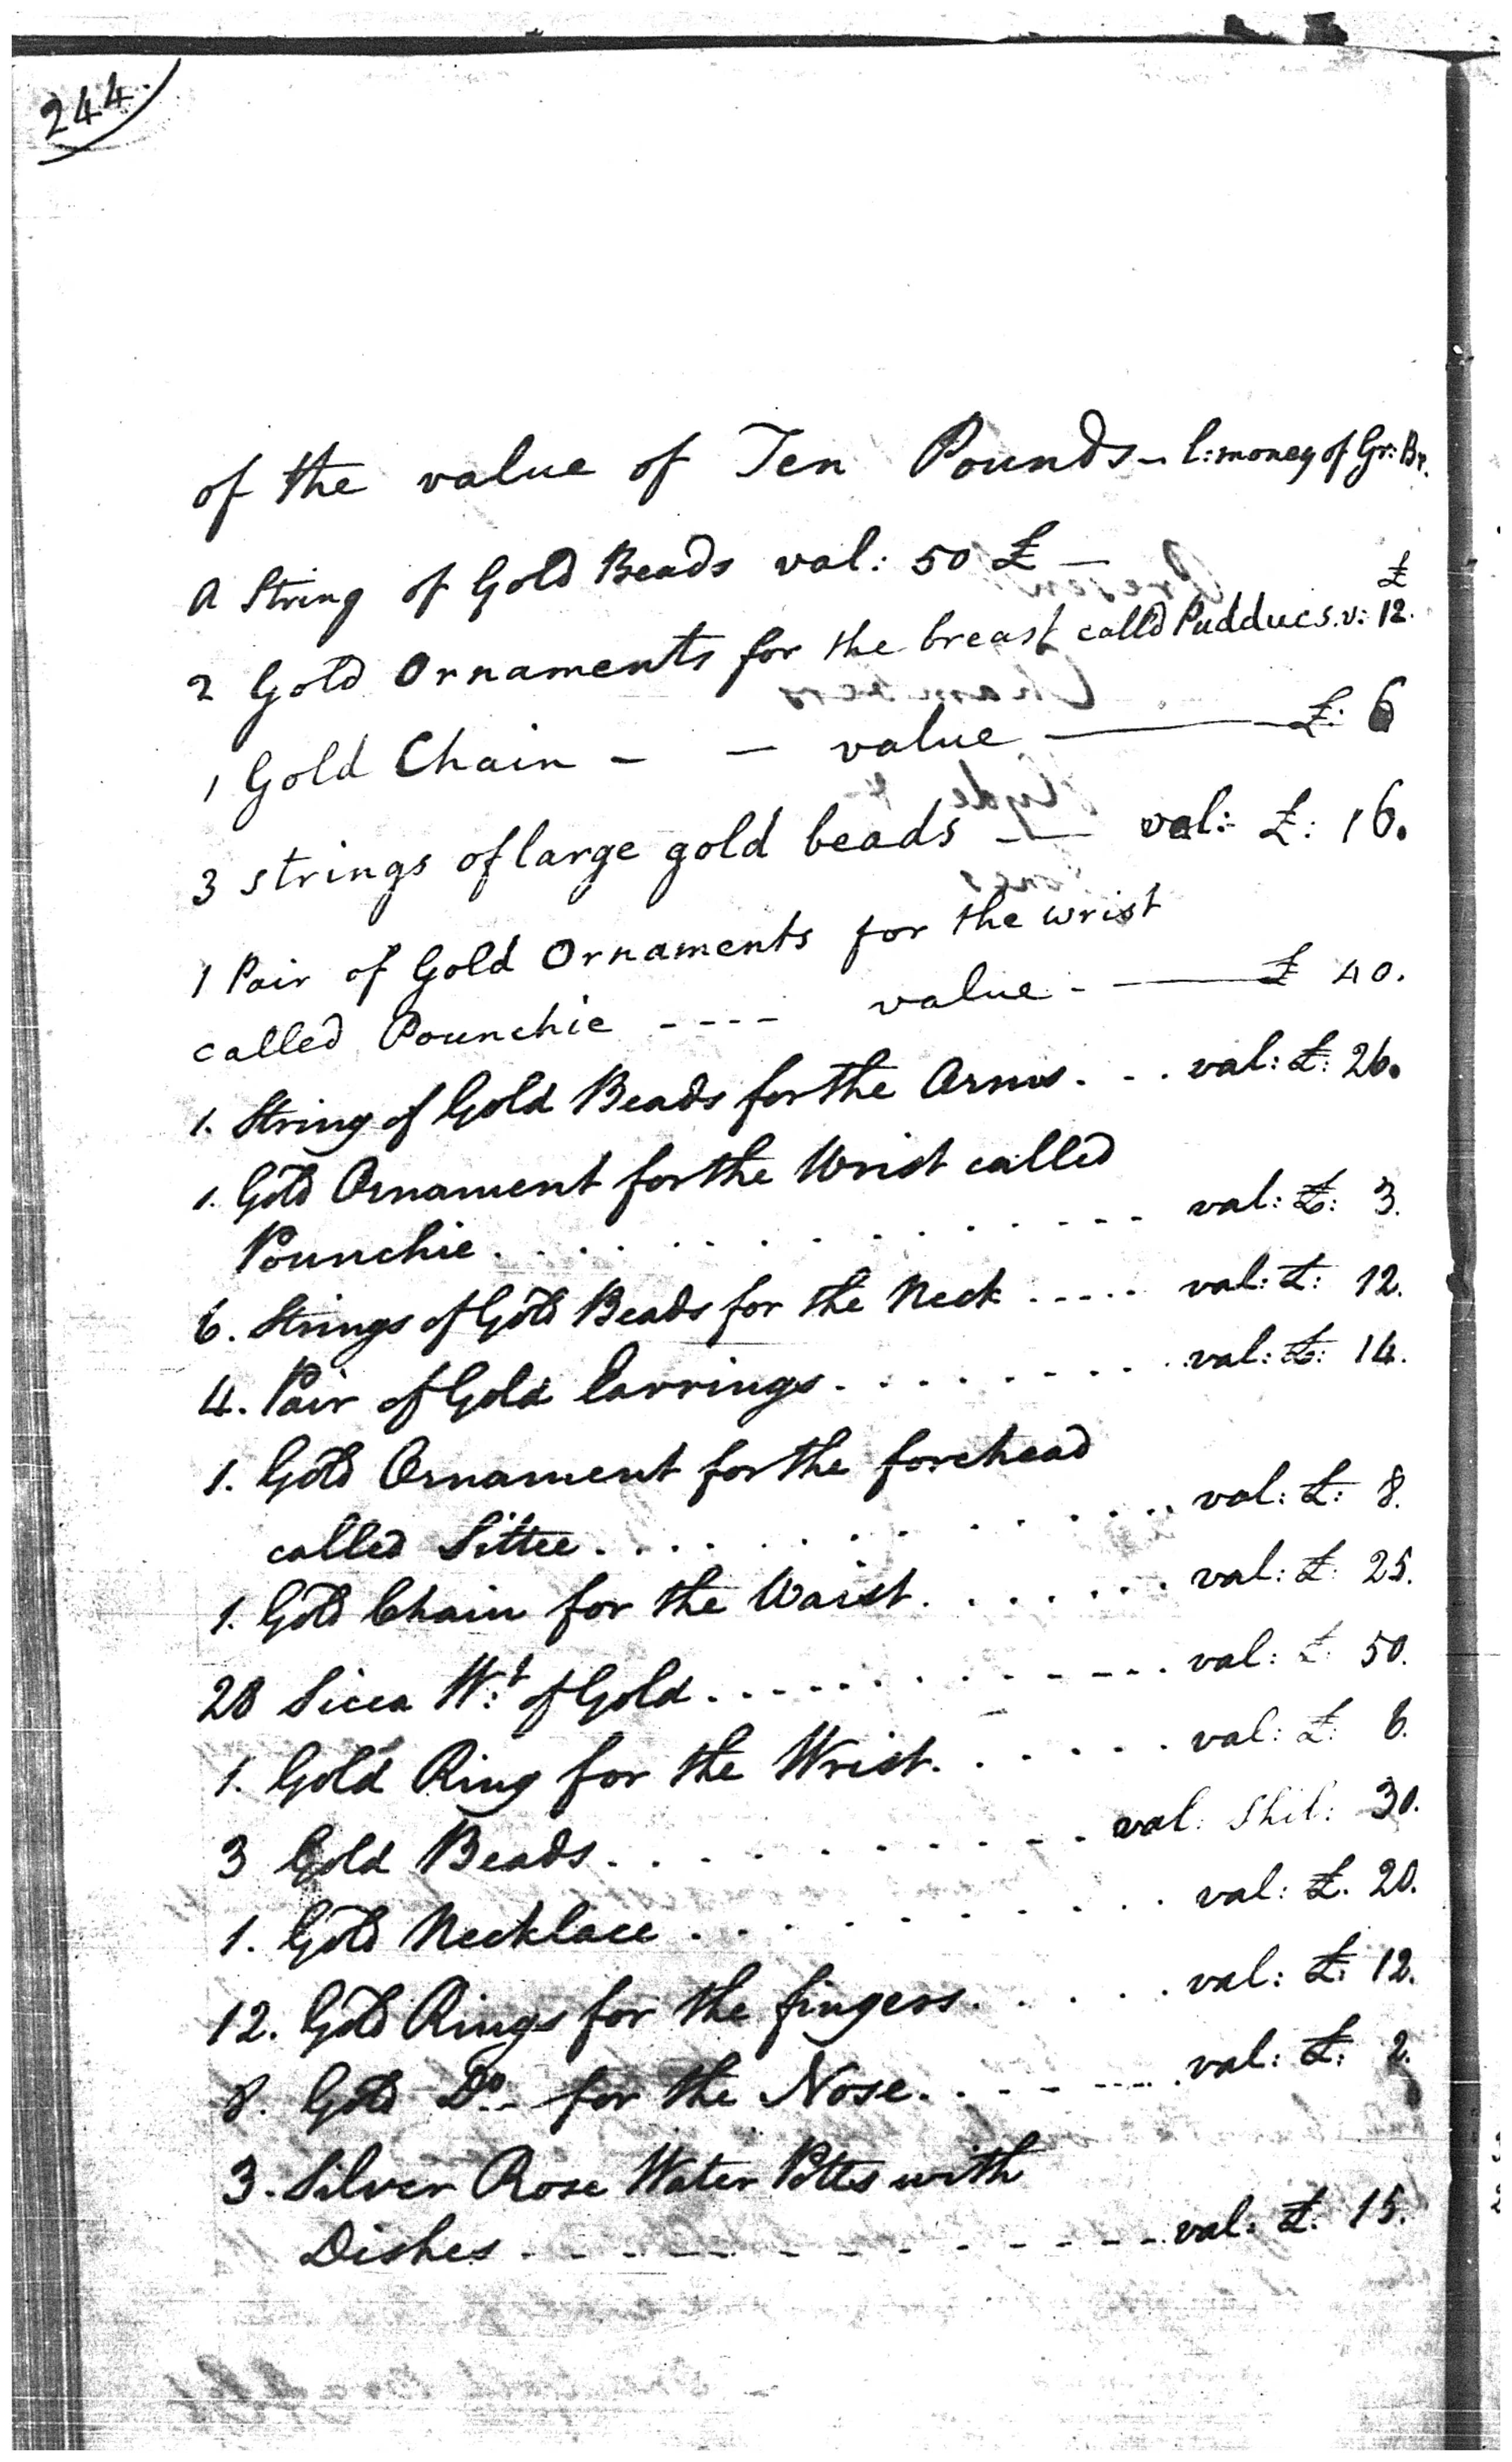 244.
of the value of Ten Pounds - l: money of Gr: Br.
A String of Gold Beads val: 50 £ -
£
2 Gold Ornaments for the breast calld Pudducs. v: 12.
1 Gold Chain - - value - £: 6
3 strings of large gold beads - val: £: 16.
1 Pair of Gold Ornaments for the wrist
called Pounchie ---- value - £ 40.
1. String of Gold Beads for the Arms. . . val: £: 26.
1. Gold Ornament for the Wrist called
Pounchie. . . . . . . . . . . . . . val: £: 3.
6. Strings of Gold Beads for the Neck ..... val: £: 12.
4. Pair of Gold Earrings. . . . . . . . . val: £: 14.
1. Gold Ornament for the forehead
called Sittee. . . . . . . . . . . . . val: £: 8.
1. Gold Chain for the Waist. . . . . . . val: £: 25.
28 Sicca W:t of Gold. . . . . . . . . . . . val: £: 50.
1. Gold Ring for the Wrist. . . . . . val: £: 6.
3 Gold Beads. . . . . . . . . . val: Shil: 30.
1. Gold Necklace . . . . . . . . . . val: £. 20.
12. Gold Rings for the fingers. . . . . . val: £: 12.
8. Gold Do- for the Nose. . . - - - - . val: £: 2.
3. Silver Rose Water Potts with
Dishes - - - - - - - - - - - - val: £: 15.